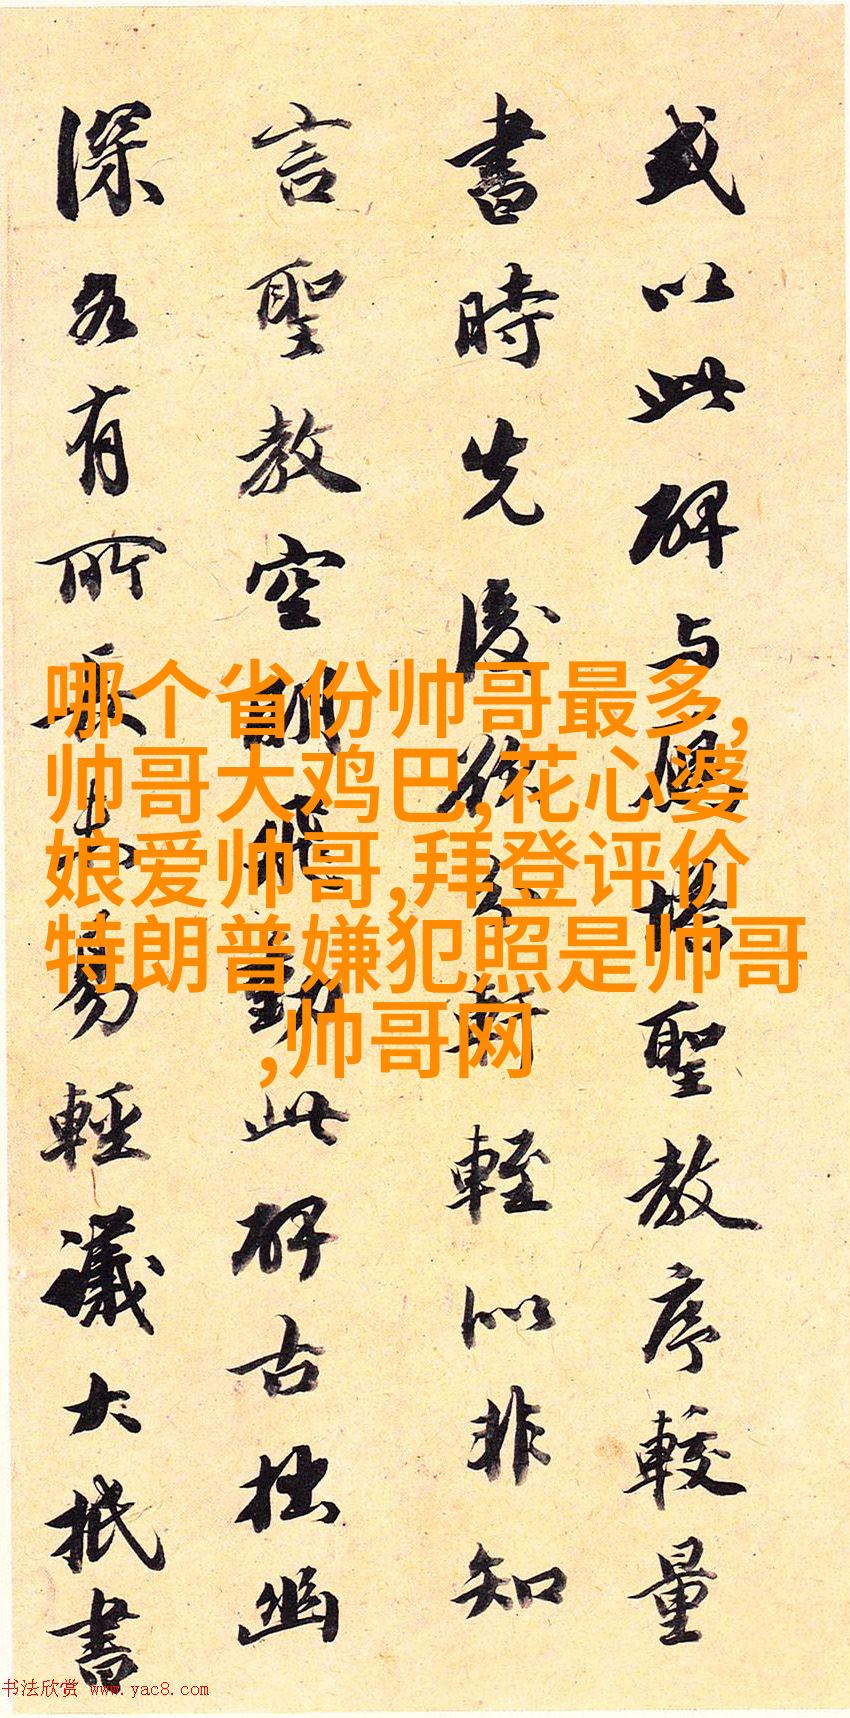 或以此碑与雁塔聖教序較量
書時先後欲分軒輊似非知
言聖教空明飛動此碑古拙幽
深各有所長未易輕議大抵書
哪个省份帅哥最多,
帅哥大鸡巴,花心婆
娘爱帅哥,拜登评价
特朗普嫌犯照是帅哥
,帅哥网
书法欣赏 www.yac8.com